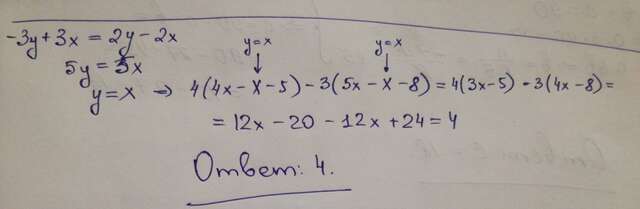 -3y+3x = 2y-2x
5y = 5x
y=x y=x
y=x ⇒ 4(4x-x-5)-3(5x-x-8)=4(3x-5)-3(4x-8)=
=12x-20-12x+24=4
Ответ: 4.